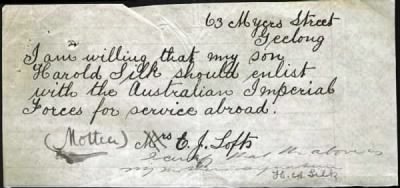 63 Myers Street
Geelong
I am willing that my son
Harold Silk should enlist
with the Australian Imperial
Forces for service abroad.
(Mother) Mrs E. J. Lofts
I certify that the above is
my mother's
H. A. Silk